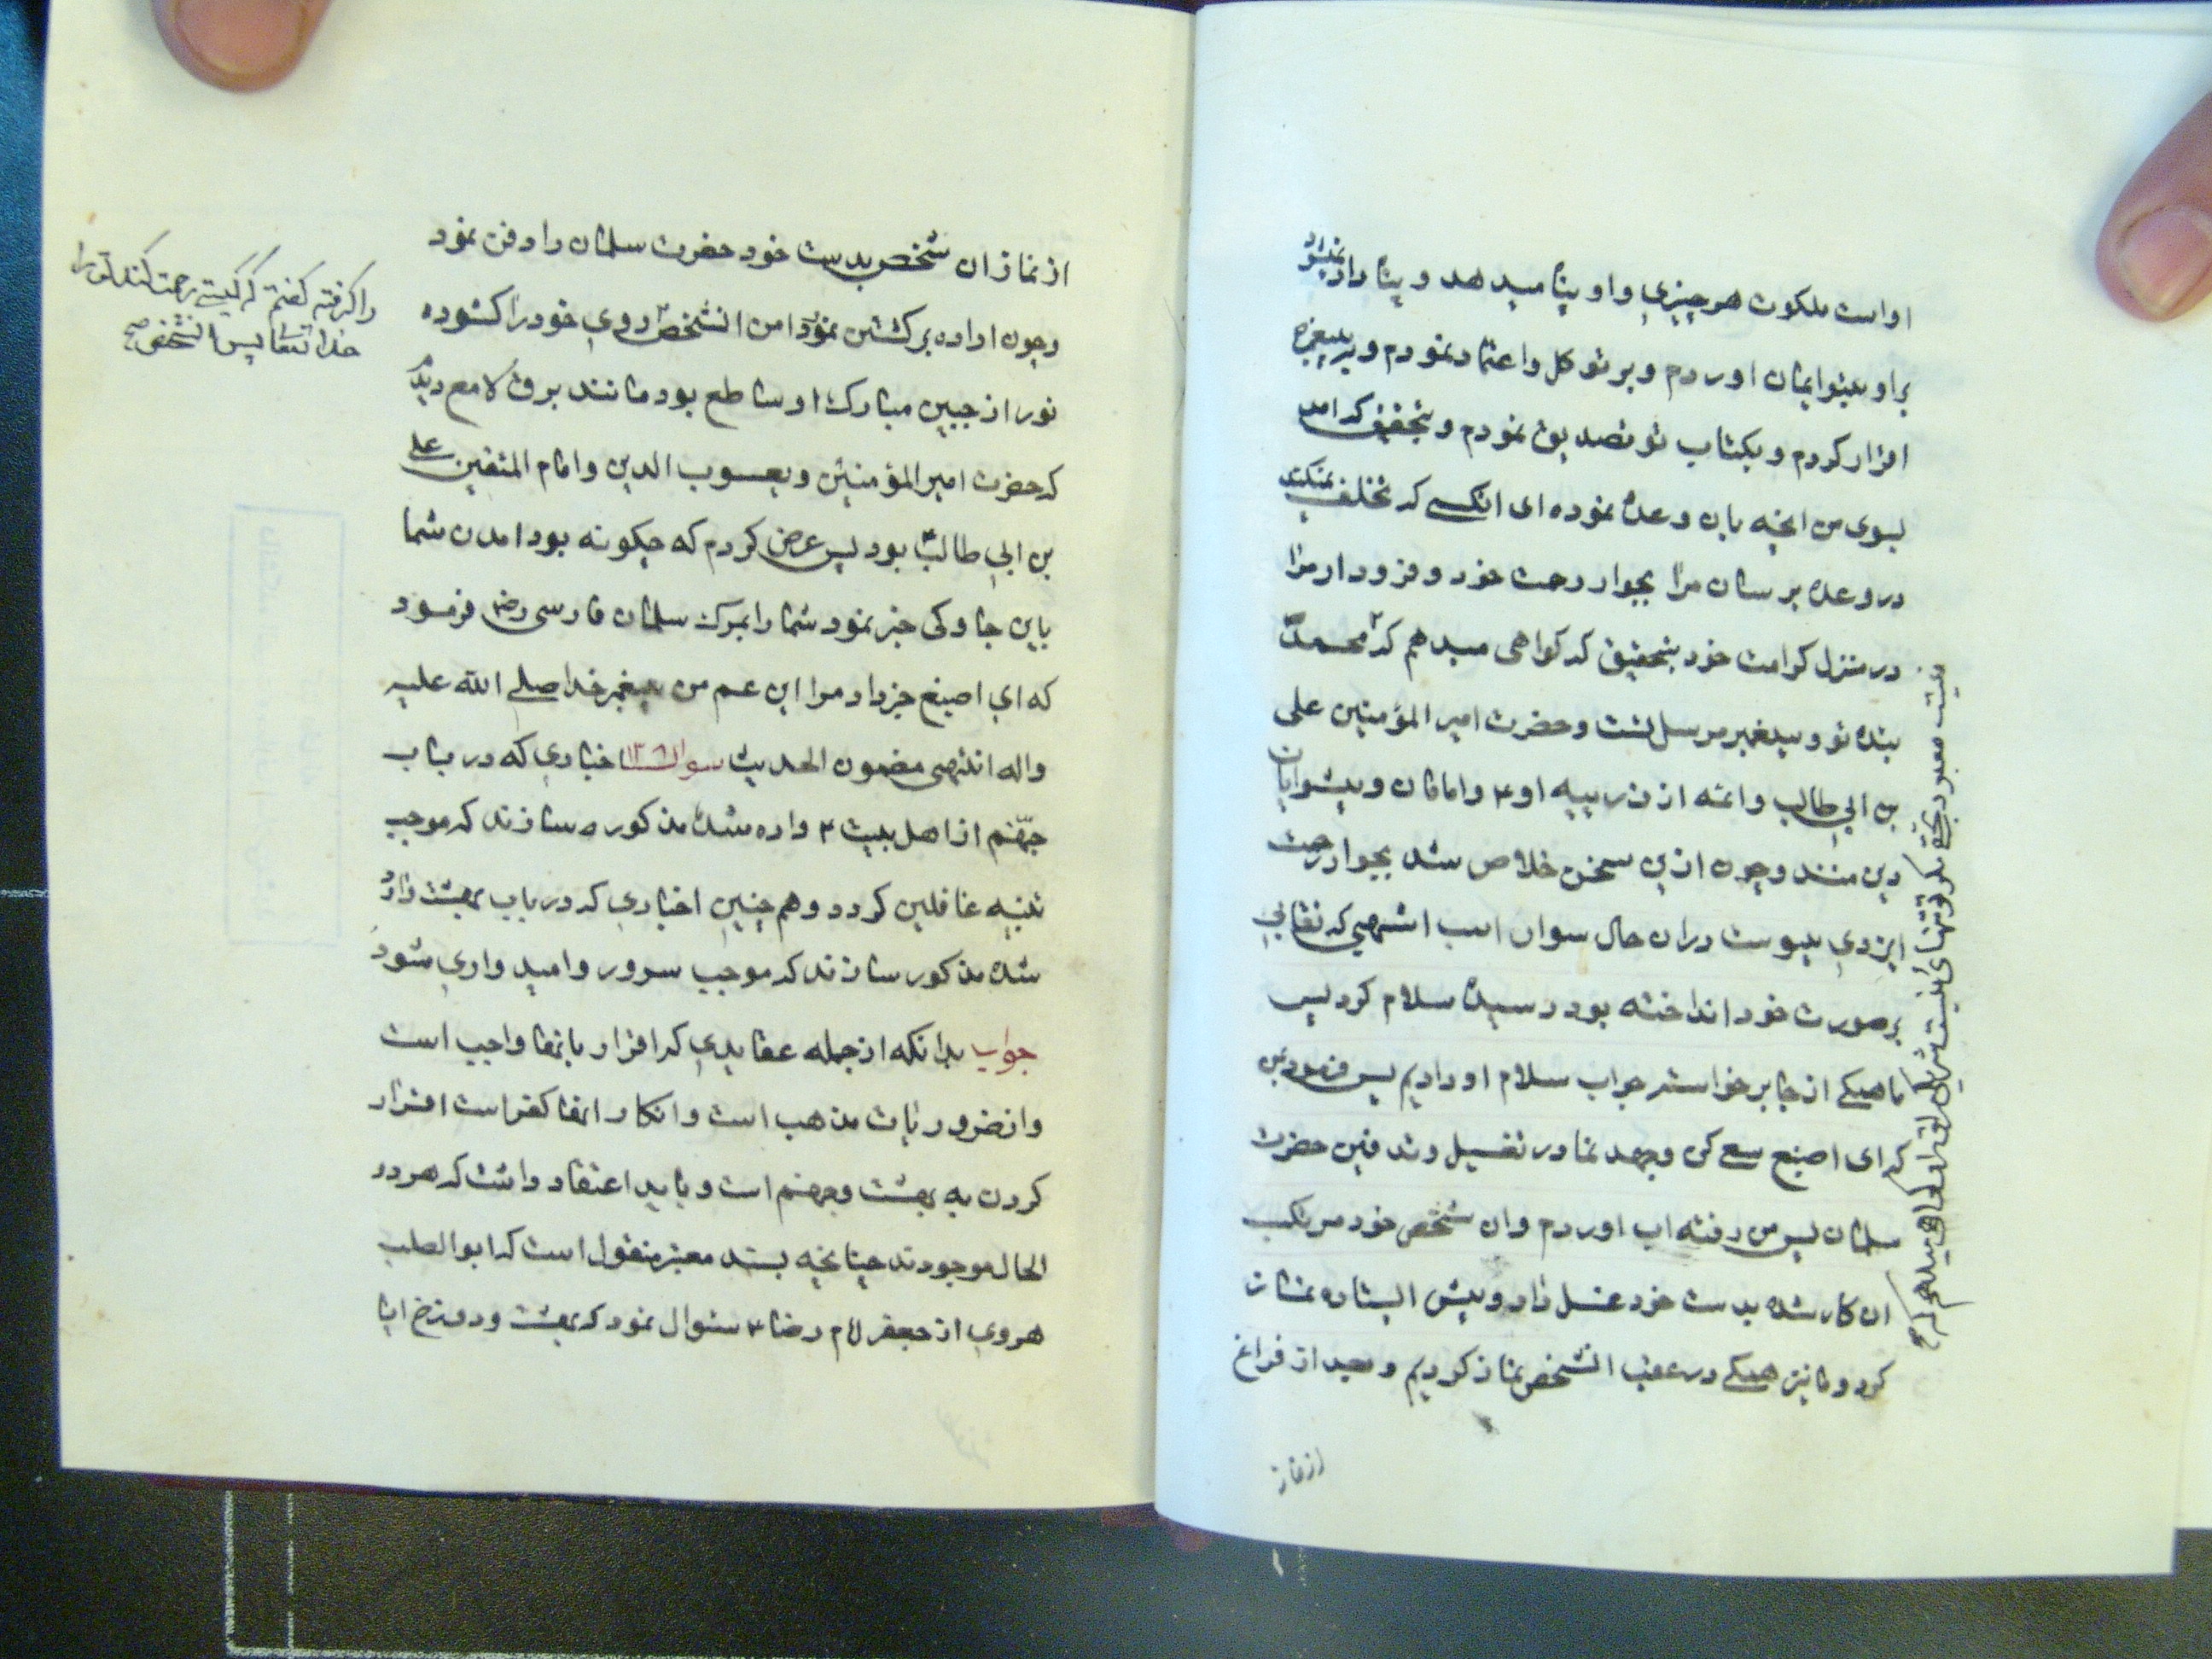 اواست ملکوت هر چیزی و او پناه میدهد و پناه داده نمیشود
براو بتو ایمان اوردم و بر تو کل و اعتماد نمودم و به پیغمبر
اقرار کردم و بکتاب تو تصدیق نمودم و بتحقیق که امد
بسوی من انچه بان وعده نموده ای انکسی که تخلف نمیکنی
در وعده برسان مرا بجوار رحمت خود و فرود ار مرا
در منزل کرامت خود بتحقیق که کواهی میدهم که محمد
بنده تو و پیغمبر مرسل تست و حضرت امیر المؤمنین علی
بن ابی طالب و ائمه از ذریه او ع و امامان و پیشوایان
دین منند و چون ازین سخن خلاص شد بجوار رحمت
ایزدی پیوست دران حال سوار اسب اشهبی که نقابی
بر صورت خود انداخته بود رسیده سلام کرد پس
ما همکی از جا برخواسته جواب سلام او دادیم پس فرمود بمن
که ای اصبغ سعی کن و جهد نما در تغسیل و تدفین حضرت
سلمان پس من رفته اب اوردم و ان شخص خود مرتکب
ان کار شده بدست خود غسل داد و پیش ایستاده نماز
کرد و ما نیز همکی در عقب انشخص نماز کردیم و بعد از فراغ
از نماز
نیست معبود بحقی مکر تو تنهائی نیست شریکی از برای تو و کواهی میدهم که صح
از نماز ان شخص بدست خود حضرت سلمان را دفن نمود
و چون اراده برکشتن نمود دامن انشخص روی خود را کشوده
نور از جبین مبارک او ساطع بود مانند برق لامع دیدم
که حضرت امیر المؤمنین و یعسوب الدین و امام المتقین علی
بن ابی طالب بود پس عرض کردم که چکونه بود امدن شما
باین جا و کی خبر نمود شما را بمرک سلمان فارسی رض فرمود
که ای اصبغ خبر داد مرا ابن عم من پیغمبر خدا صلی الله علیه
واله انتهی مضمون الحدیث سوال ۱۳ اخباری که در باب
جهنم از اهل بیت ع وارد شده مذکور سازند که موجب
تنبیه غافلین کردد و هم چنین اخباری که در باب بهشت وارد
شده مذکور سازند که موجب سرور و امیدواری شود
جواب بدانکه از جمله عقایدی که اقرار بانها واجب است
و از ضروریات مذهب است و انکار انها کفر است اقرار
کردن به بهشت و جهنم است و باید اعتقاد داشت که هر دو
الحال موجودند چنانچه بسند معتبر منقول است که ابوالصلب
هروی از حضرت امام رضا ع سئوال نمود که بهشت و دوزخ ایا
را کرفته کفتم که کیستی رحمت کند تو را
خدا تعالی پس انشخص صح